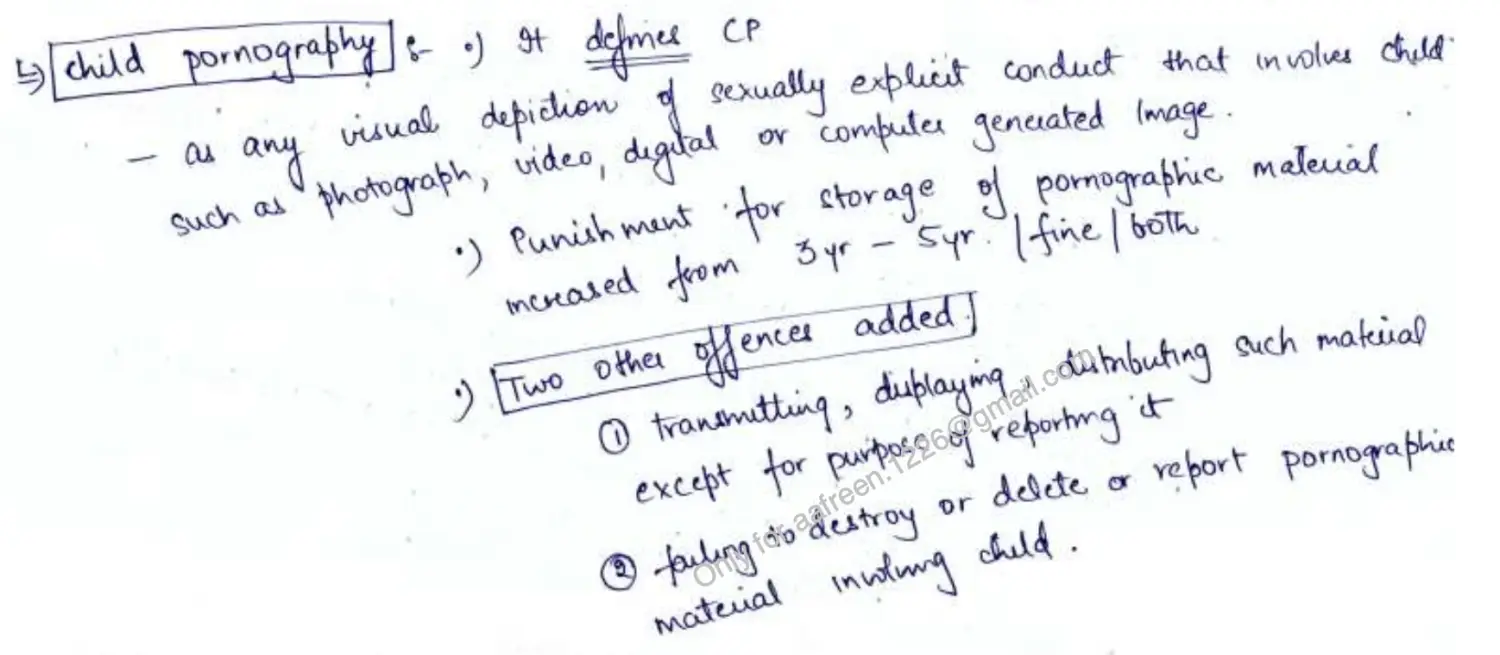 ↳ child pornography :- •) It defines CP
– as any visual depiction of sexually explicit conduct that involves child
such as photograph, video, digital or computer generated Image.
•) Punishment for storage of pornographic material
increased from 3yr – 5yr. / fine / both
•) Two other offences added.
① transmitting, displaying, distributing such material
except for purpose of reporting it
② failing to destroy or delete or report pornographic
material involving child.
Only for aafreen.1226@gmail.com